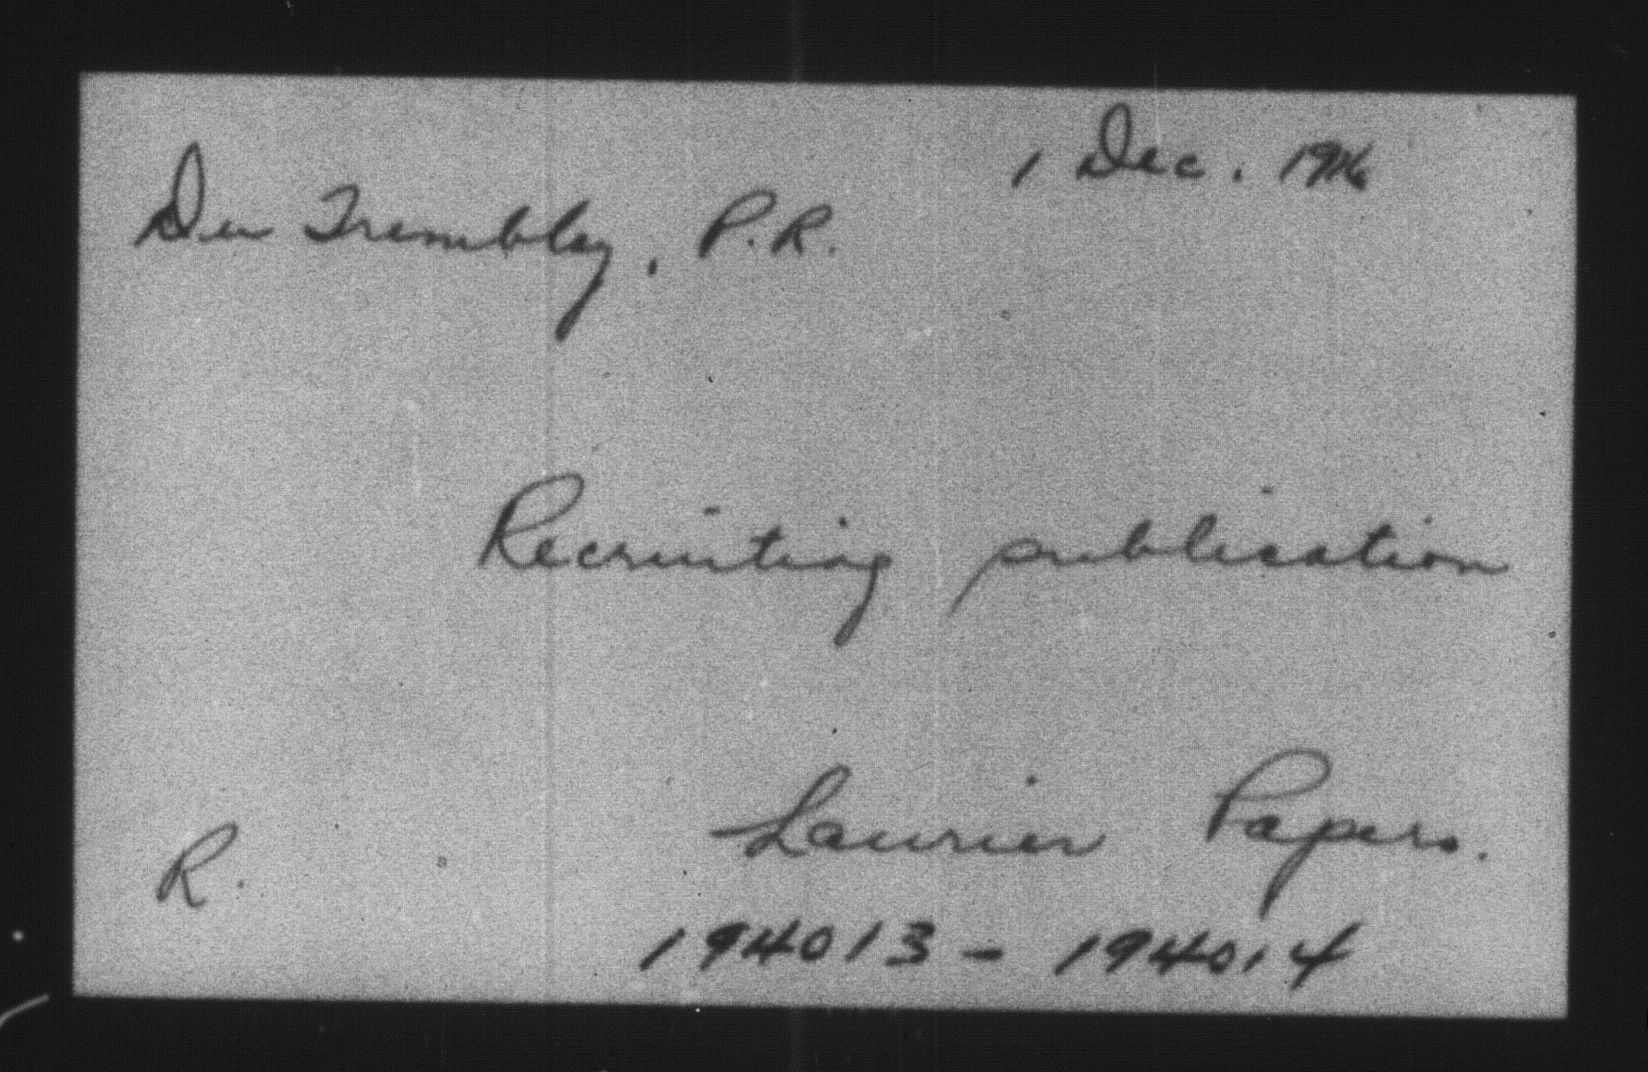 1 Dec. 1916
Du Trembley, P.R.
Recruiting publication
Laurier Papers.
R.
194013 - 194014